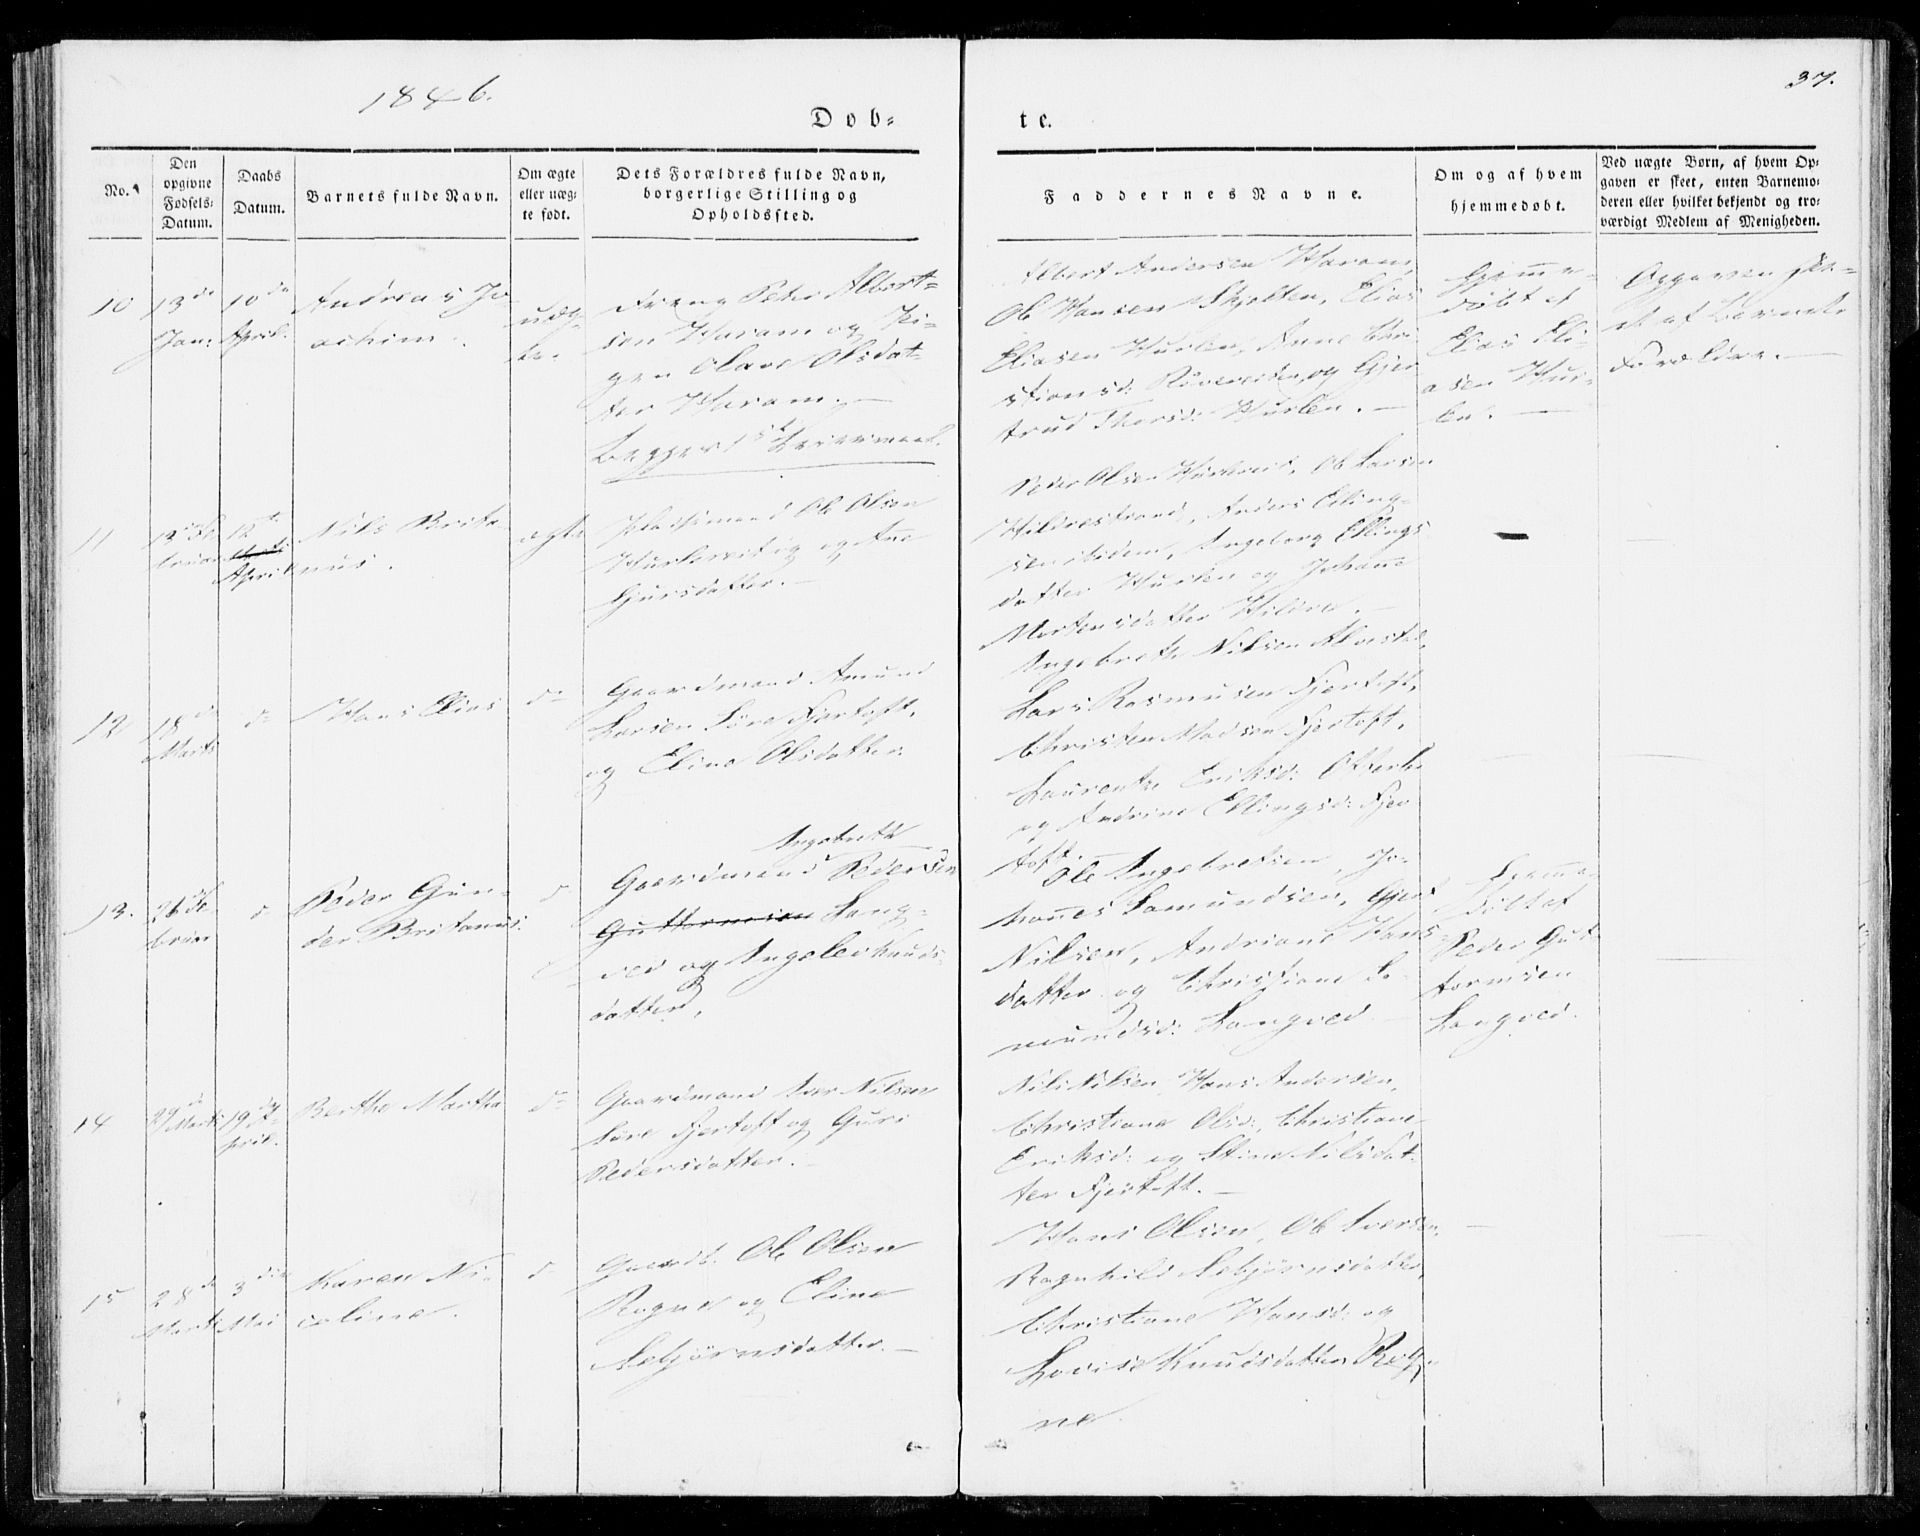 1846.
37.
Döb-
te.
No.
Den opgivne Fødsels-Datum.
Daabs Datum.
Barnets fulde Navn.
Om ægte eller uægte født.
Dets Forældres fulde Navn, borgerlige Stilling og Opholdssted.
Faddernes Navne.
Om og af hvem hjemmedøbt.
Ved uægte Børn, af hvem Opgaven er skeet, enten Barnemoderen eller hvilket bekjendt og troværdigt Medlem af Menigheden.
10
13de Jan:
10de April.
Andreas Jo-
achim.
uæg-
te.
Dreng Peder Albert-
sen Haram og Pi-
gen Olave Olsdat-
ter Haram.
Begges 1ste Leiermaal.
Albert Andersen Haram,
Ole Hansen Skjelten, Elias
Eliasen Hurlen, Anne Chri-
stiansd: og Gjer-
trud Thorsd: Hurlen.
Hjemme-
døbt af
Elias Eli-
asen Hur-
len.
Opgaven ske-
et af Barnets
Forældre.
11
April
Nils Brita-
nus.
ægte
Pladsmand Ole Olsen
og Ane
Sjursdatter.
Peder Olsen
Ole Larsen
Hildrestrand, Anders Elling-
sen ibidem, Ingeborg Ellings-
datter Hurlen og Johanne
Mortensdatter Hildre.
12
18de Marts
do
Hans Elias
do
Gaardmand Amund
Larsen Søre Fjortoft,
og Eline Olsdatter.
Ingebreth Nilsen
Lars Rasmusen Fjortoft,
Christen Madsen Fjortoft,
Laurentse Eriksd:
og Andrine Ellingsd: Fjor-
toft.
13.
26de Fe-
bruar
do
Peder Gun-
der Britanus.
do
Ingebreth
Gaardmand Pedersen
Guttormsen Lang-
ved og Ingelev Knuds-
datter.
Ole Ingebretsen, Jo-
hannes Samundsen, Gjert
Nilsen, Andriane Hans-
datter og Christiane Sa-
mundsd: Langved
døbt af
Peder Gut-
tormsen
Langved.
14
29de Marts
19de A-
pril.
Berthe Martha
do
Gaardmand Iver Nilsen
Søre Fjortoft og Guri
Pedersdatter.
Nils Nilsen, Hans Andersen,
Christiane Olsd:, Christiane
Eriksd: og Stine Nilsdat-
ter Fjortoft.
15
28de
Marts
3die
Mai
Karen Ni-
coline.
do
Gaardb: Ole Olsen
Rogne og Eline
Asbjørnsdatter.
Hans Olsen, Ole Iversen,
Ragnhild Asbjørnsdatter,
Christiane Hansd: og
Lovise Knudsdatter Rog-
ne.